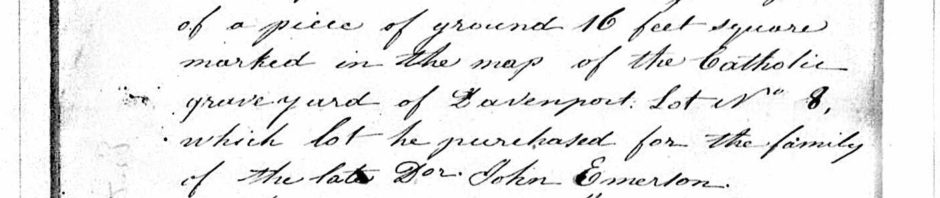 of a piece of ground 16 feet square
marked in the map of the Catholic
grave yard of Davenport. Lot No 8,
which lot he purchased for the family
of the late Dor. John Emerson.